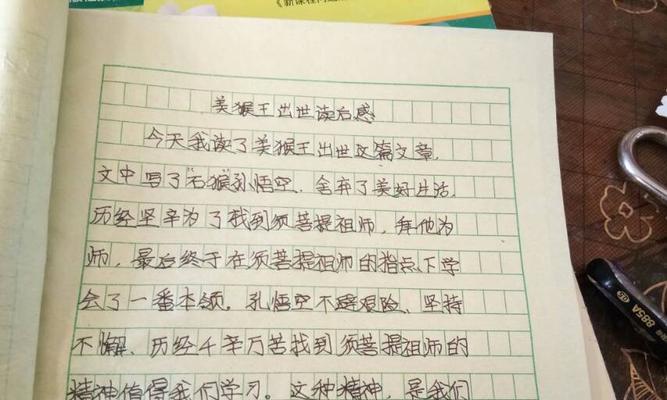 《新课程
美猴王出世读后感
今天我读了美猴王出世这篇文章,
文中写了"石猴"孙悟空,舍弃了美好生活,
历经坚辛为了找到须菩提祖师,拜他为
师,最后终于在须菩提祖师的指点下学
会了一番本领。孔悟空不避艰险、坚持
不懈、历经千辛万苦找到须菩提祖师的
精神值得我们学习。这种精神,是我们
885A